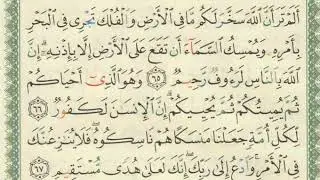 أَلَمْ تَرَ أَنَّ ٱللَّهَ سَخَّرَ لَكُم مَّا فِى ٱلْأَرْضِ وَٱلْفُلْكَ تَجْرِى فِى ٱلْبَحْرِ
بِأَمْرِهِۦ وَيُمْسِكُ ٱلسَّمَآءَ أَن تَقَعَ عَلَى ٱلْأَرْضِ إِلَّا بِإِذْنِهِۦٓ ۗ إِنَّ
ٱللَّهَ بِٱلنَّاسِ لَرَءُوفٌ رَّحِيمٌ ۝٦٥ وَهُوَ ٱلَّذِىٓ أَحْيَاكُمْ
ثُمَّ يُمِيتُكُمْ ثُمَّ يُحْيِيكُمْ ۗ إِنَّ ٱلْإِنسَٰنَ لَكَفُورٌ ۝٦٦
لِّكُلِّ أُمَّةٍ جَعَلْنَا مَنسَكًا هُمْ نَاسِكُوهُ ۖ فَلَا يُنَٰزِعُنَّكَ
فِى ٱلْأَمْرِ ۚ وَٱدْعُ إِلَىٰ رَبِّكَ ۖ إِنَّكَ لَعَلَىٰ هُدًى مُّسْتَقِيمٍ ۝٦٧